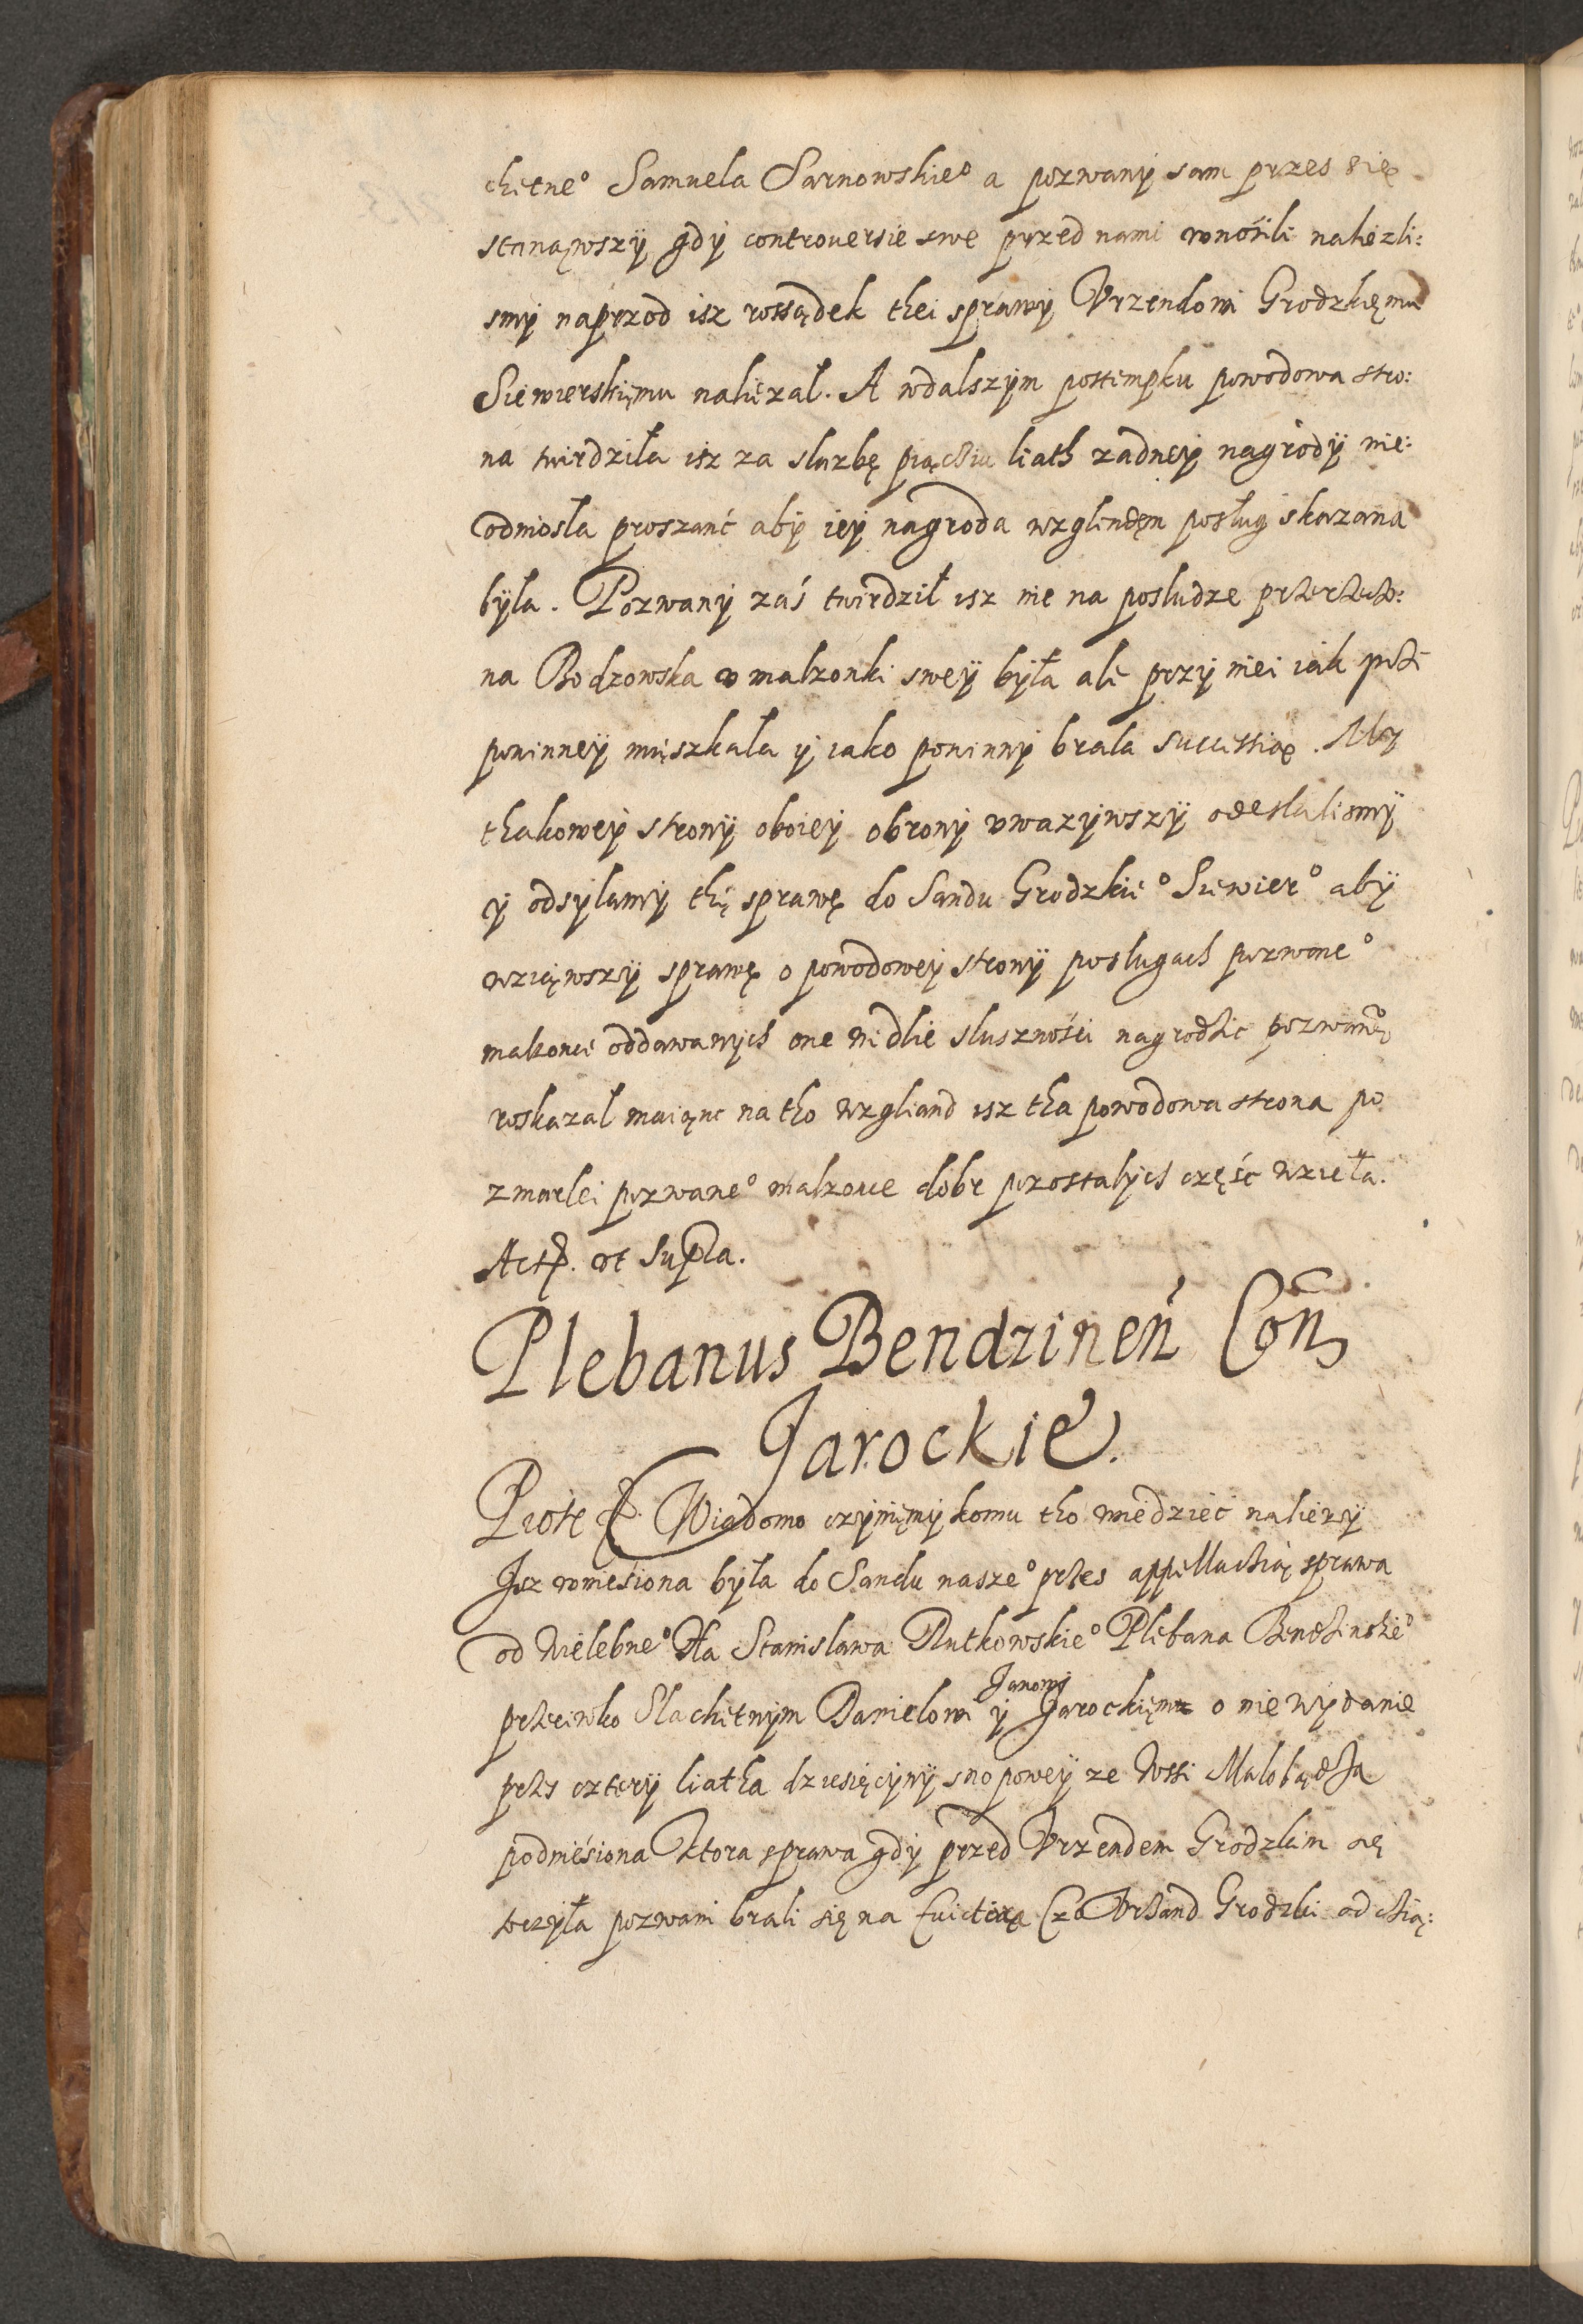 chetne° Samuela Sarnowskie° a pozwany sam przes się
stanąwszÿ gdÿ controuersie swe przed nami wnosili nalezli:
smÿ naprzod isz rossądek thei sprawÿ Vrzendowi Grodzkięmu
Siewierskięmu nalieżal. A wdalszÿm postempku powodowa stro:
na twirdziła isz za sluzbę piąciu liath zadneÿ nagrodÿ nie:
odniosła proszanć abÿ ieÿ nagroda wzglendem posług skazana
bÿla. Pozwanÿ zaś twirdził isz nie na posludze przerzeczo:
na Bodzowska v malzonki sweÿ bÿła ale przÿ niei iak przi
powinneÿ mięszkała ÿ iako powinnÿ brala successią. Mÿ
thakoweÿ stronÿ oboieÿ obronÿ vwazÿwszÿ odesłalismÿ
ÿ odsÿlamÿ thę sprawę do Sandu Grodzkie° Siewier° abÿ
wziąwszÿ sprawę o powodoweÿ stronÿ poslugach pozwane°
malzonce oddawanÿch one wedlie slusznosći nagrodzic pozwanę°
roskazal maiąnc na tho wzgliand isz tha powodowa strona po
zmarlei pozwane° malzonce dobr pozostalÿch część wzieła.
Act. vt Supra.
Plebanus Bendzineń Con
Jarockie.
Piotr Wiadomo czÿnięmÿ komu tho wiedziec naliezÿ
Isz wniesiona bÿła do Sandu nasze° przes appellacÿią sprawa
od Wielebne° Xa Stanislawa Rutkowskie° Plebana Bendzinskie°
przeciwko Slachetnÿm Danielowi ÿ Janowi Jarockięmu o nie wÿdanie
przes czterÿ liatha dziesięcÿnÿ snopoweÿ ze Wssi Malobądza
podniesiona Ktora sprawa gdÿ przed Vrzendem Grodzkim się
toczÿła pozwani brali się na Euictią Czo Vrzand Grodzki odcią: